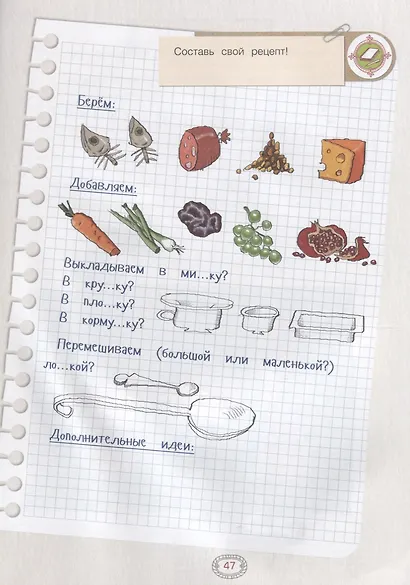 Составь свой рецепт!
Берём:
Добавляем:
Выкладываем в ми...ку?
В кру...ку?
В пло...ку?
В корму...ку?
Перемешиваем (большой или маленькой?)
ло...кой?
Дополнительные идеи:
47